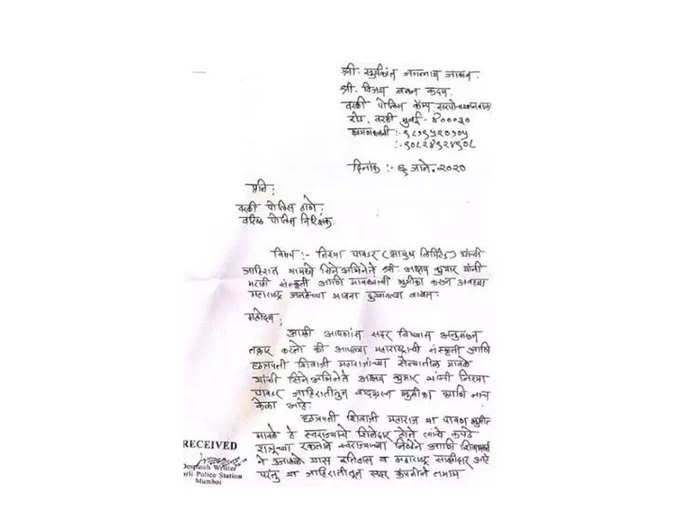 श्री. सुर्यकांत जगन्नाथ जाधव.
श्री. विजय कदम
वरळी पोलिस कॅम्प
रोड, वरळी मुंबई - ४०००३०
दिनांक :- ६ जाने. २०२०
प्रति,
वरळी पोलिस ठाणे.
वरिष्ठ पोलिस निरिक्षक.
विषय :- निरमा पावडर (साबुण लिमिटेड) यांची
जाहिरात मध्ये सिनेअभिनेते श्री अक्षय कुमार यांनी
मराठी संस्कृती आणि मावळ्यांची भुमीका करुन अवघ्या
महाराष्ट्र जनतेच्या भावना दुखावल्या बाबत.
महोदय,
आम्ही आपणांस सदर विषयास अनुसरून
तक्रार करतो की आपल्या महाराष्ट्राची संस्कृती आणि
छत्रपती शिवाजी महाराजांच्या सैन्यातील मावळे
यांची सिनेअभिनेते अक्षय कुमार यांनी निरमा
पावडर जाहिरातीतून भुमीका आणि नाच
केला आहे.
छत्रपती शिवाजी महाराज या पावन भुमीत
मावळे हे स्वराज्याचे शिलेदार होते त्यांचे कपडे
शत्रूच्या रक्ताने स्वराज्याच्या निष्ठेने आणि
ने यास इतिहास व महाराष्ट्र साक्षीदार आहे
परंतु या जाहिरातीतून सदर कंपनीने तमाम
RECEIVED
Despatch Writer
Worli Police Station
Mumbai